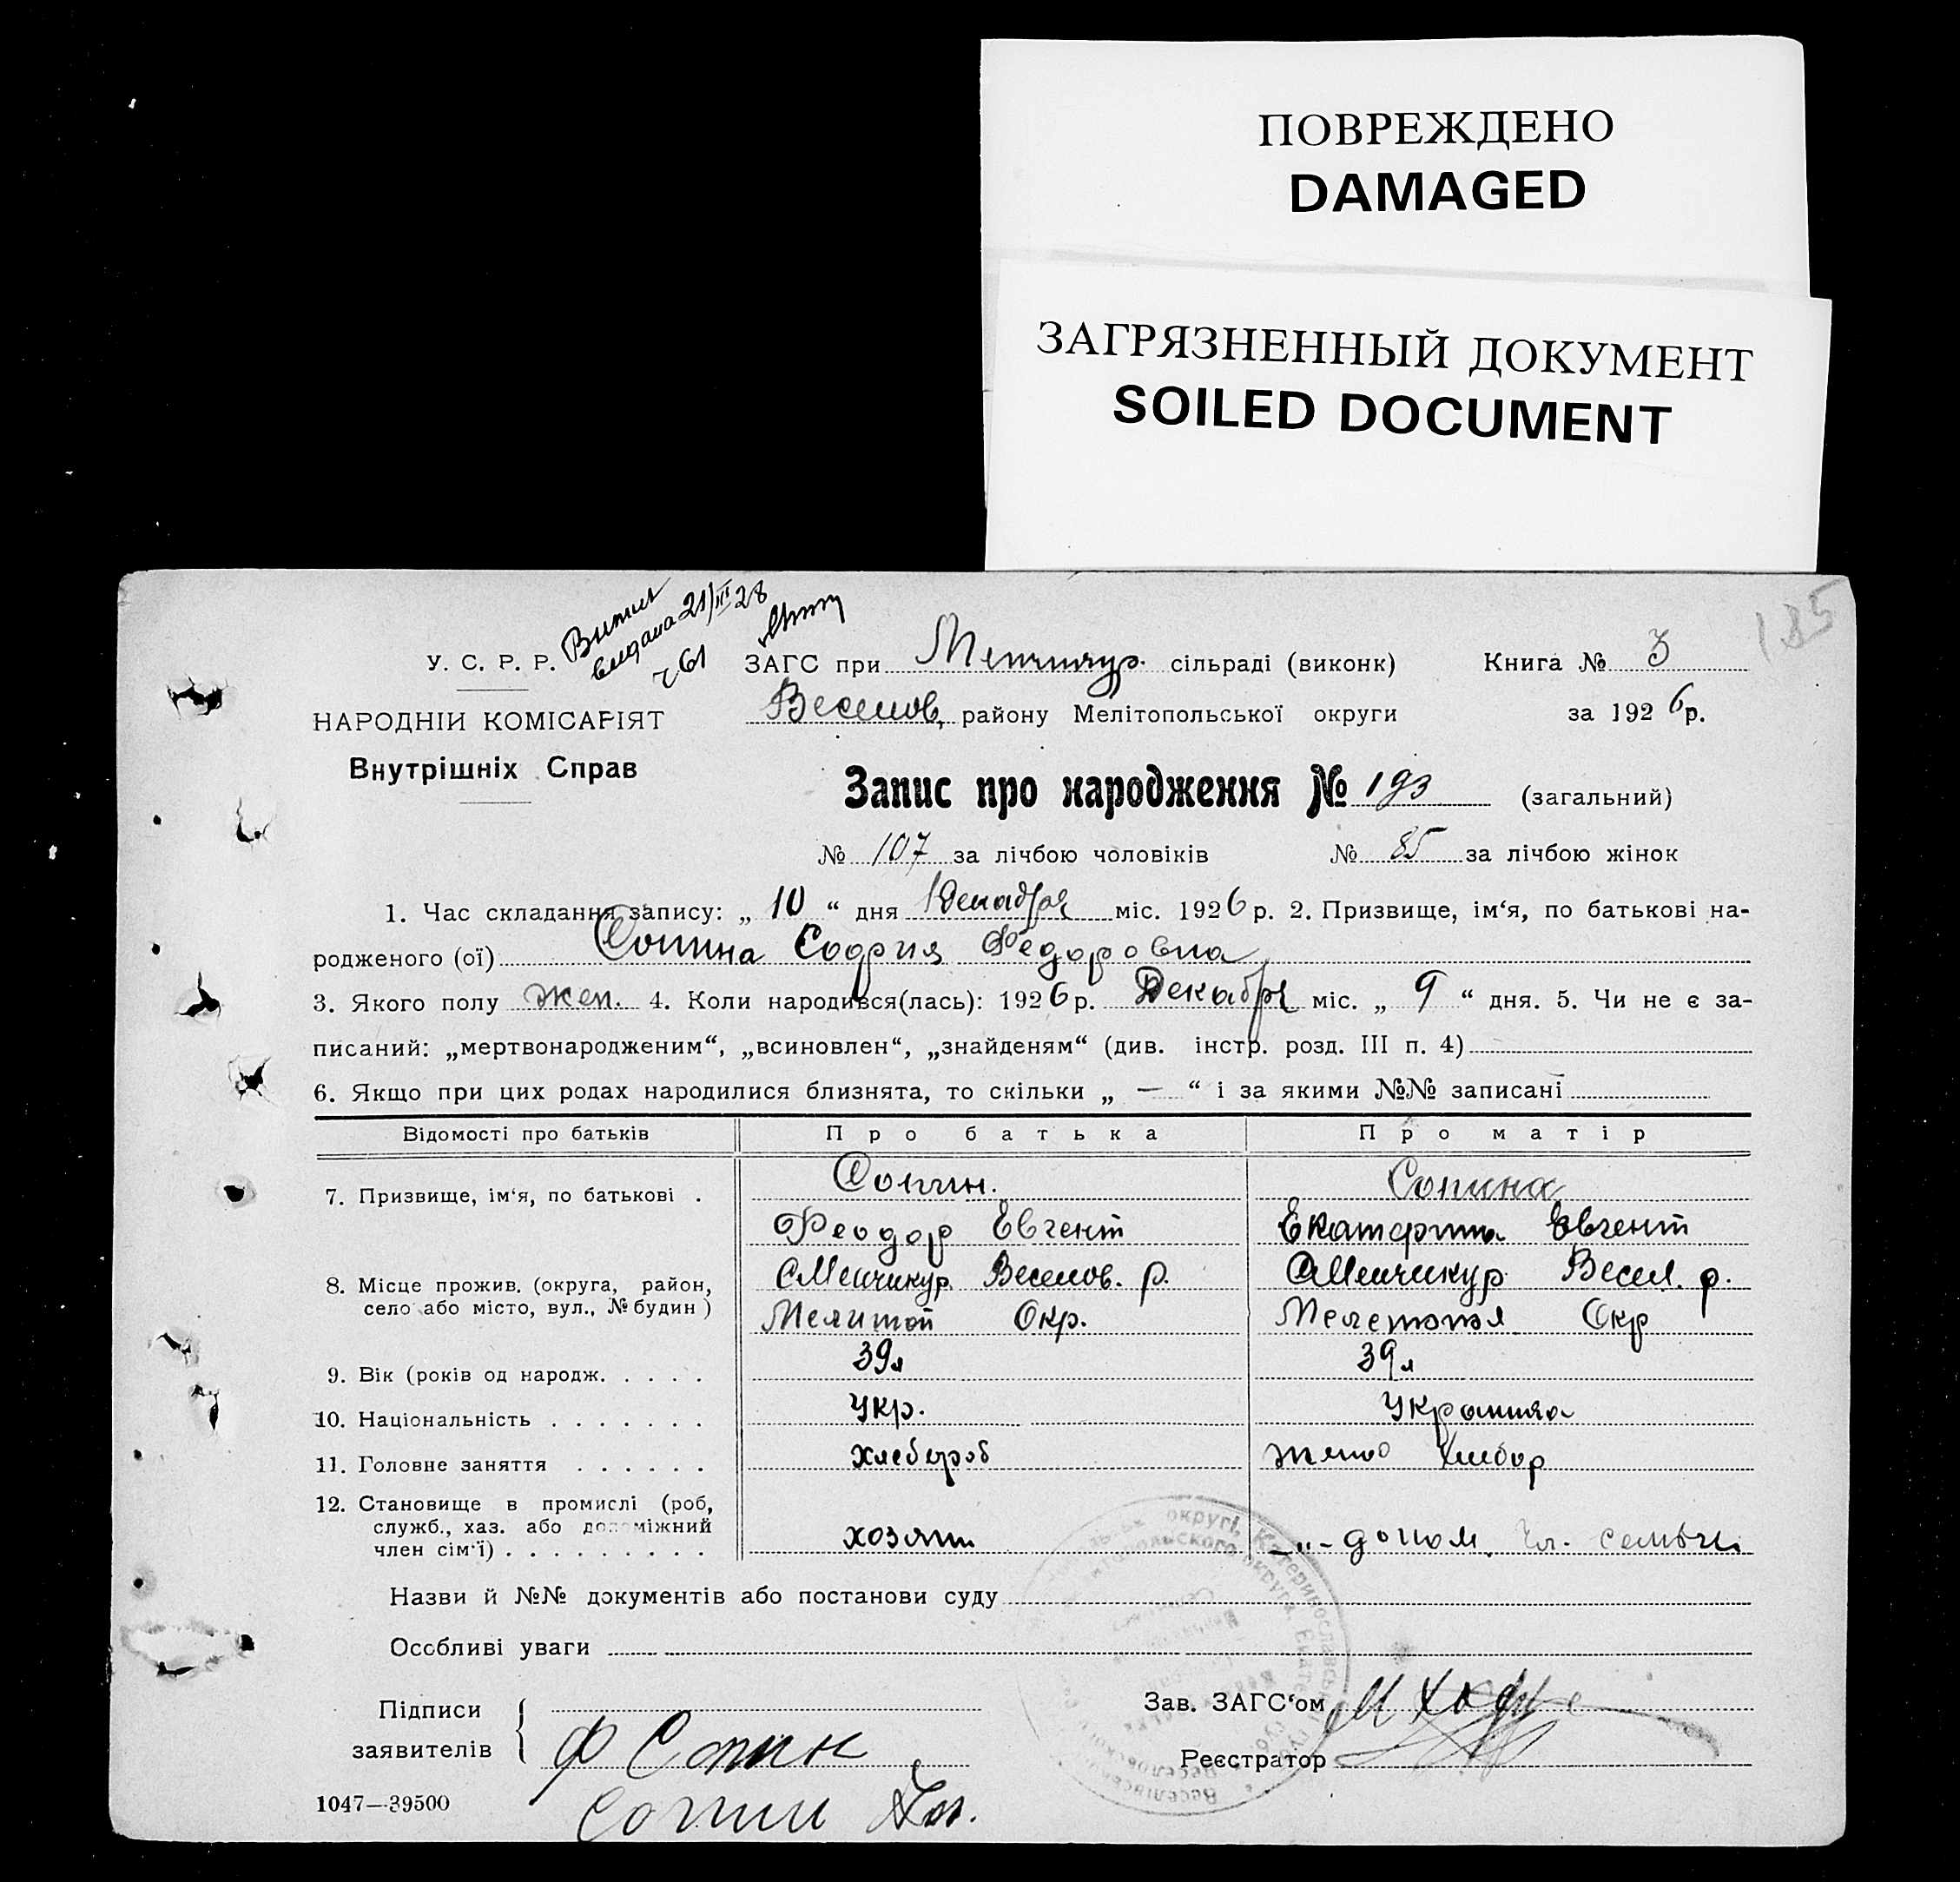 ПОВРЕЖДЕНО
DAMAGED
ЗАГРЯЗНЕННЫЙ ДОКУМЕНТ
SOILED DOCUMENT
185
выдана 21/III 28
У. С. Р. Р.
ЗАГС при сільраді (виконк) Книга № 3
НАРОДНІЙ КОМІСАРІЯТ
Веселов. району Мелітопольської округи за 1926 р.
Внутрішніх Справ
Запис про народження № 193 (загальний)
№ 107 за лічбою чоловіків № 85 за лічбою жінок
1. Час складання запису: „ 10 “ дня Декабря міс. 1926 р. 2. Призвище, ім‘я, по батькові на-
родженого (ої) Сопина София Федоровна
3. Якого полу жен. 4. Коли народився(лась): 1926 р. Декабря міс. „ 9 “ дня. 5. Чи не є за-
писаний: „мертвонародженим“, „всиновлен“, „знайденям“ (див. інстр. розд. III п. 4)
6. Якщо при цих родах народилися близнята, то скільки „ — “ і за якими №№ записані
Відомості про батьків Про батька Про матір
7. Призвище, ім‘я, по батькові . Сопин. Сопина
Феодор Евгент Екатерина Евгент
8. Місце прожив. (округа, район, село або місто, вул., № будин) С Менчикур Веселов. р. С Менчикур Весел. р.
Мелитоп Окр. Окр
9. Вік (років од народж. . . . . 39 л 39 л
10. Національність . . . . . . . Укр.
11. Головне заняття . . . . . . хлебороб
12. Становище в промислі (роб, служб., хаз. або допоміжний член сім‘ї) . . . . . . . . . хозяин —„— допом. Чл. семьи
Назви й №№ документів або постанови суду
Особливі уваги
Підписи
заявителів
Ф Сопин
Сопин
Зав. ЗАГС‘ом
Реєстратор
1047—39500